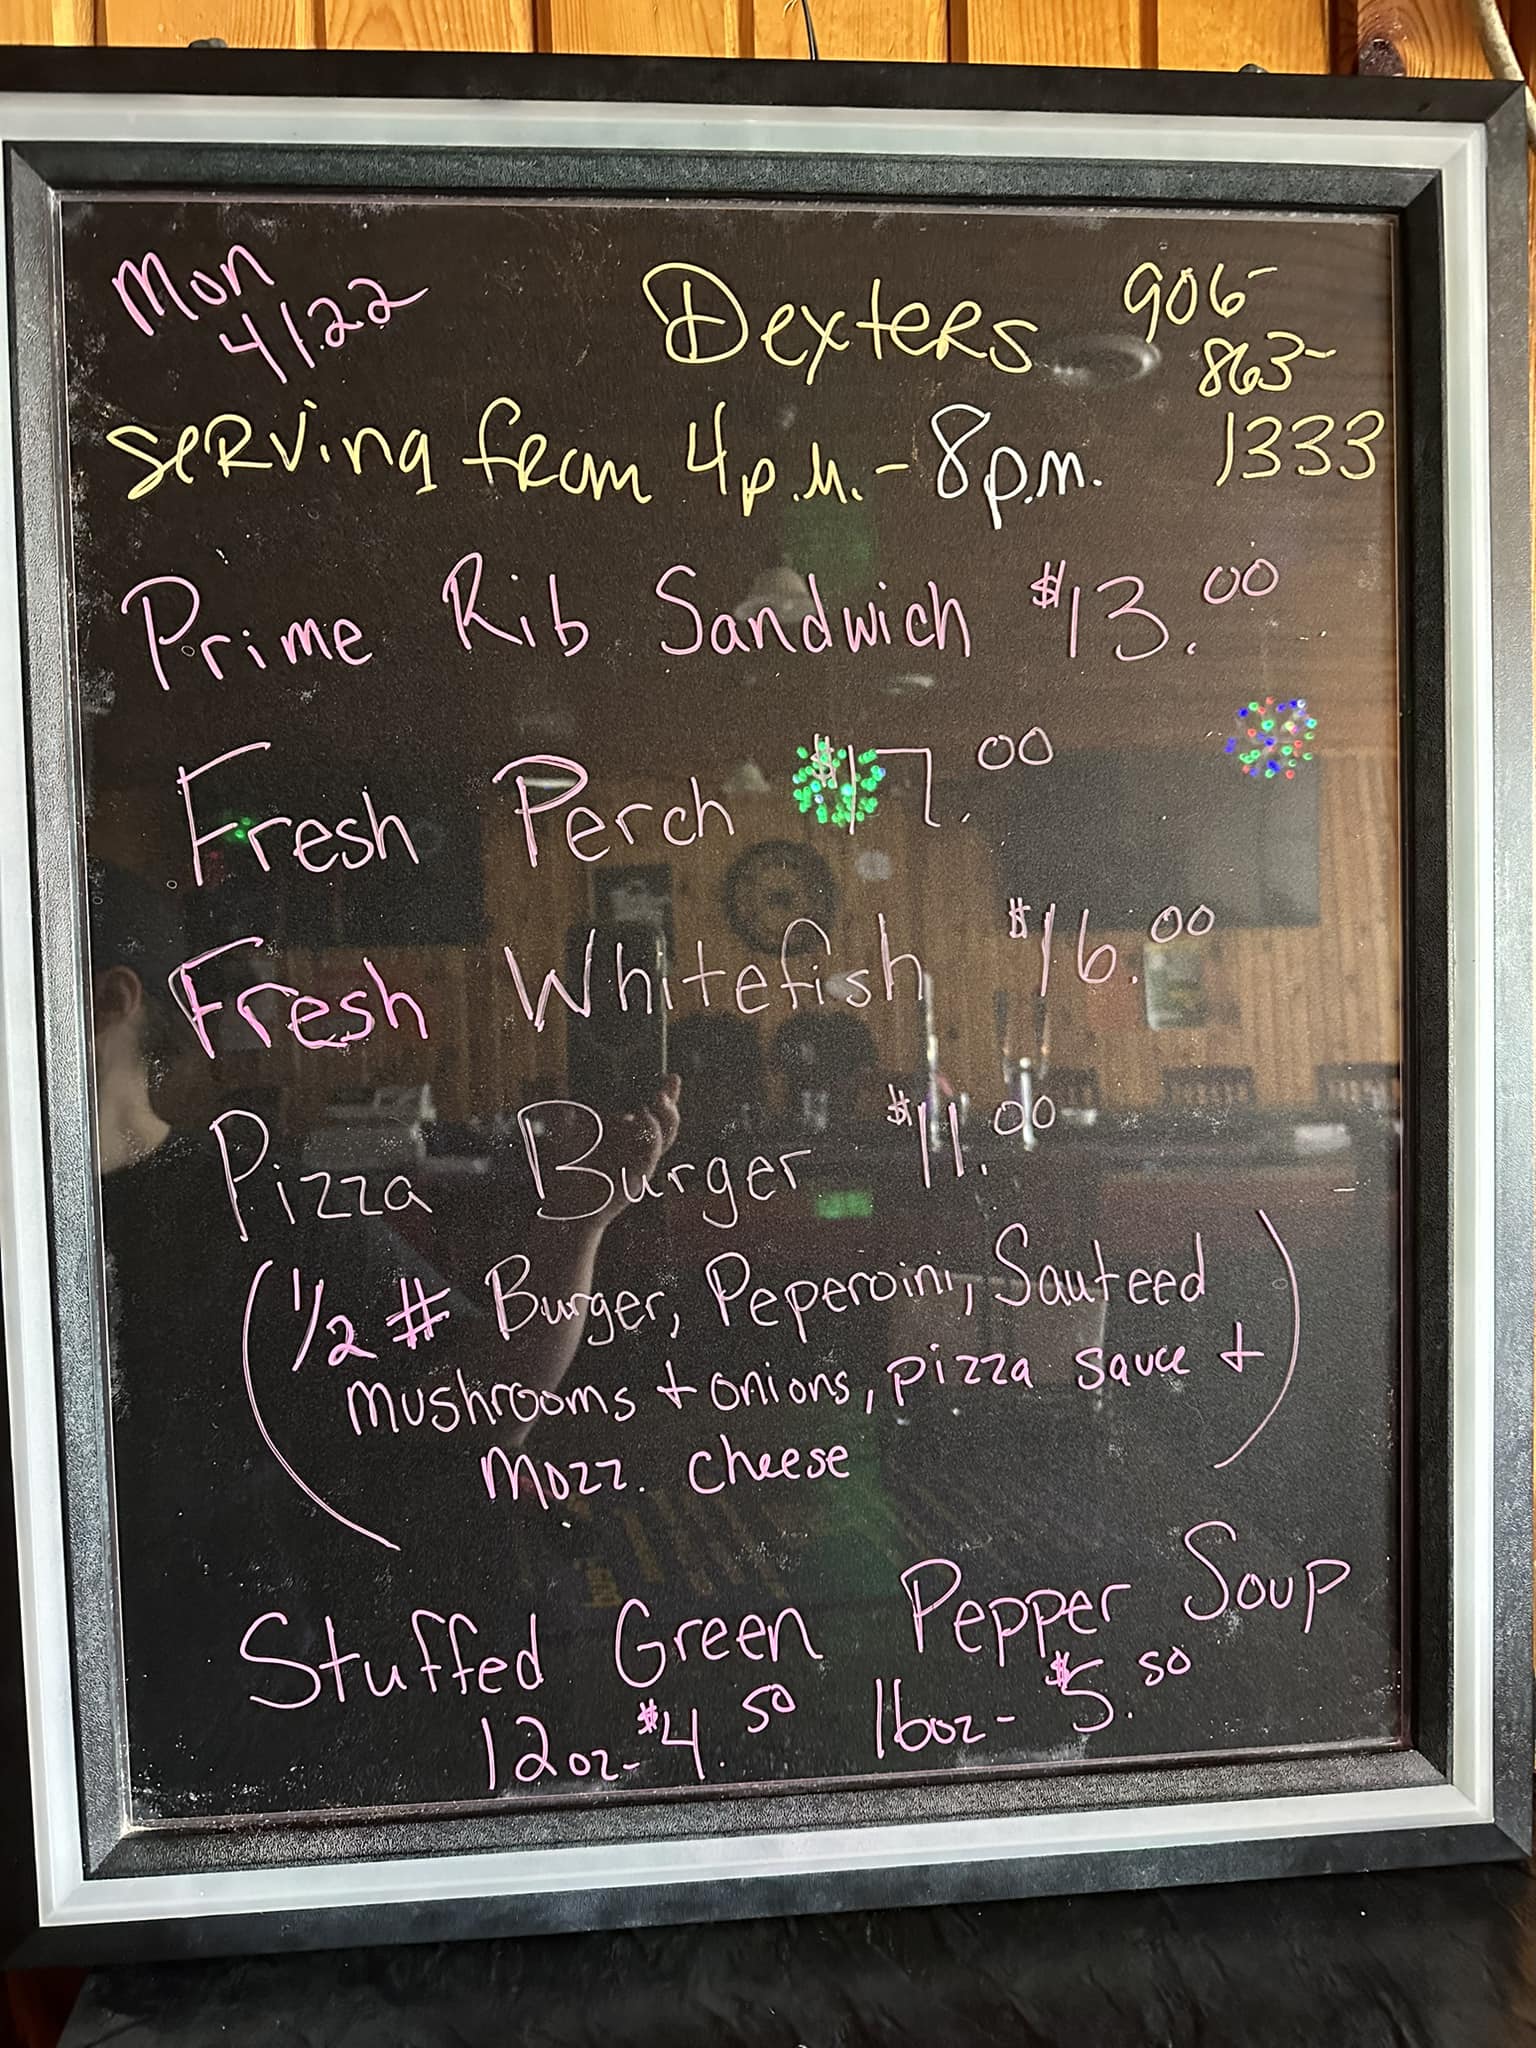 Mon
4/22
Dexters
906-
863-
1333
Serving from 4p.m.-8p.m.
Prime Rib Sandwich $13.00
Fresh Perch $17.00
Fresh Whitefish $16.00
Pizza Burger $11.00
(1/2 # Burger, Peperoini, Sauteed
mushrooms + onions, pizza sauce +
Mozz. cheese)
Stuffed Green Pepper Soup
12oz-$4.50 16oz-$5.50